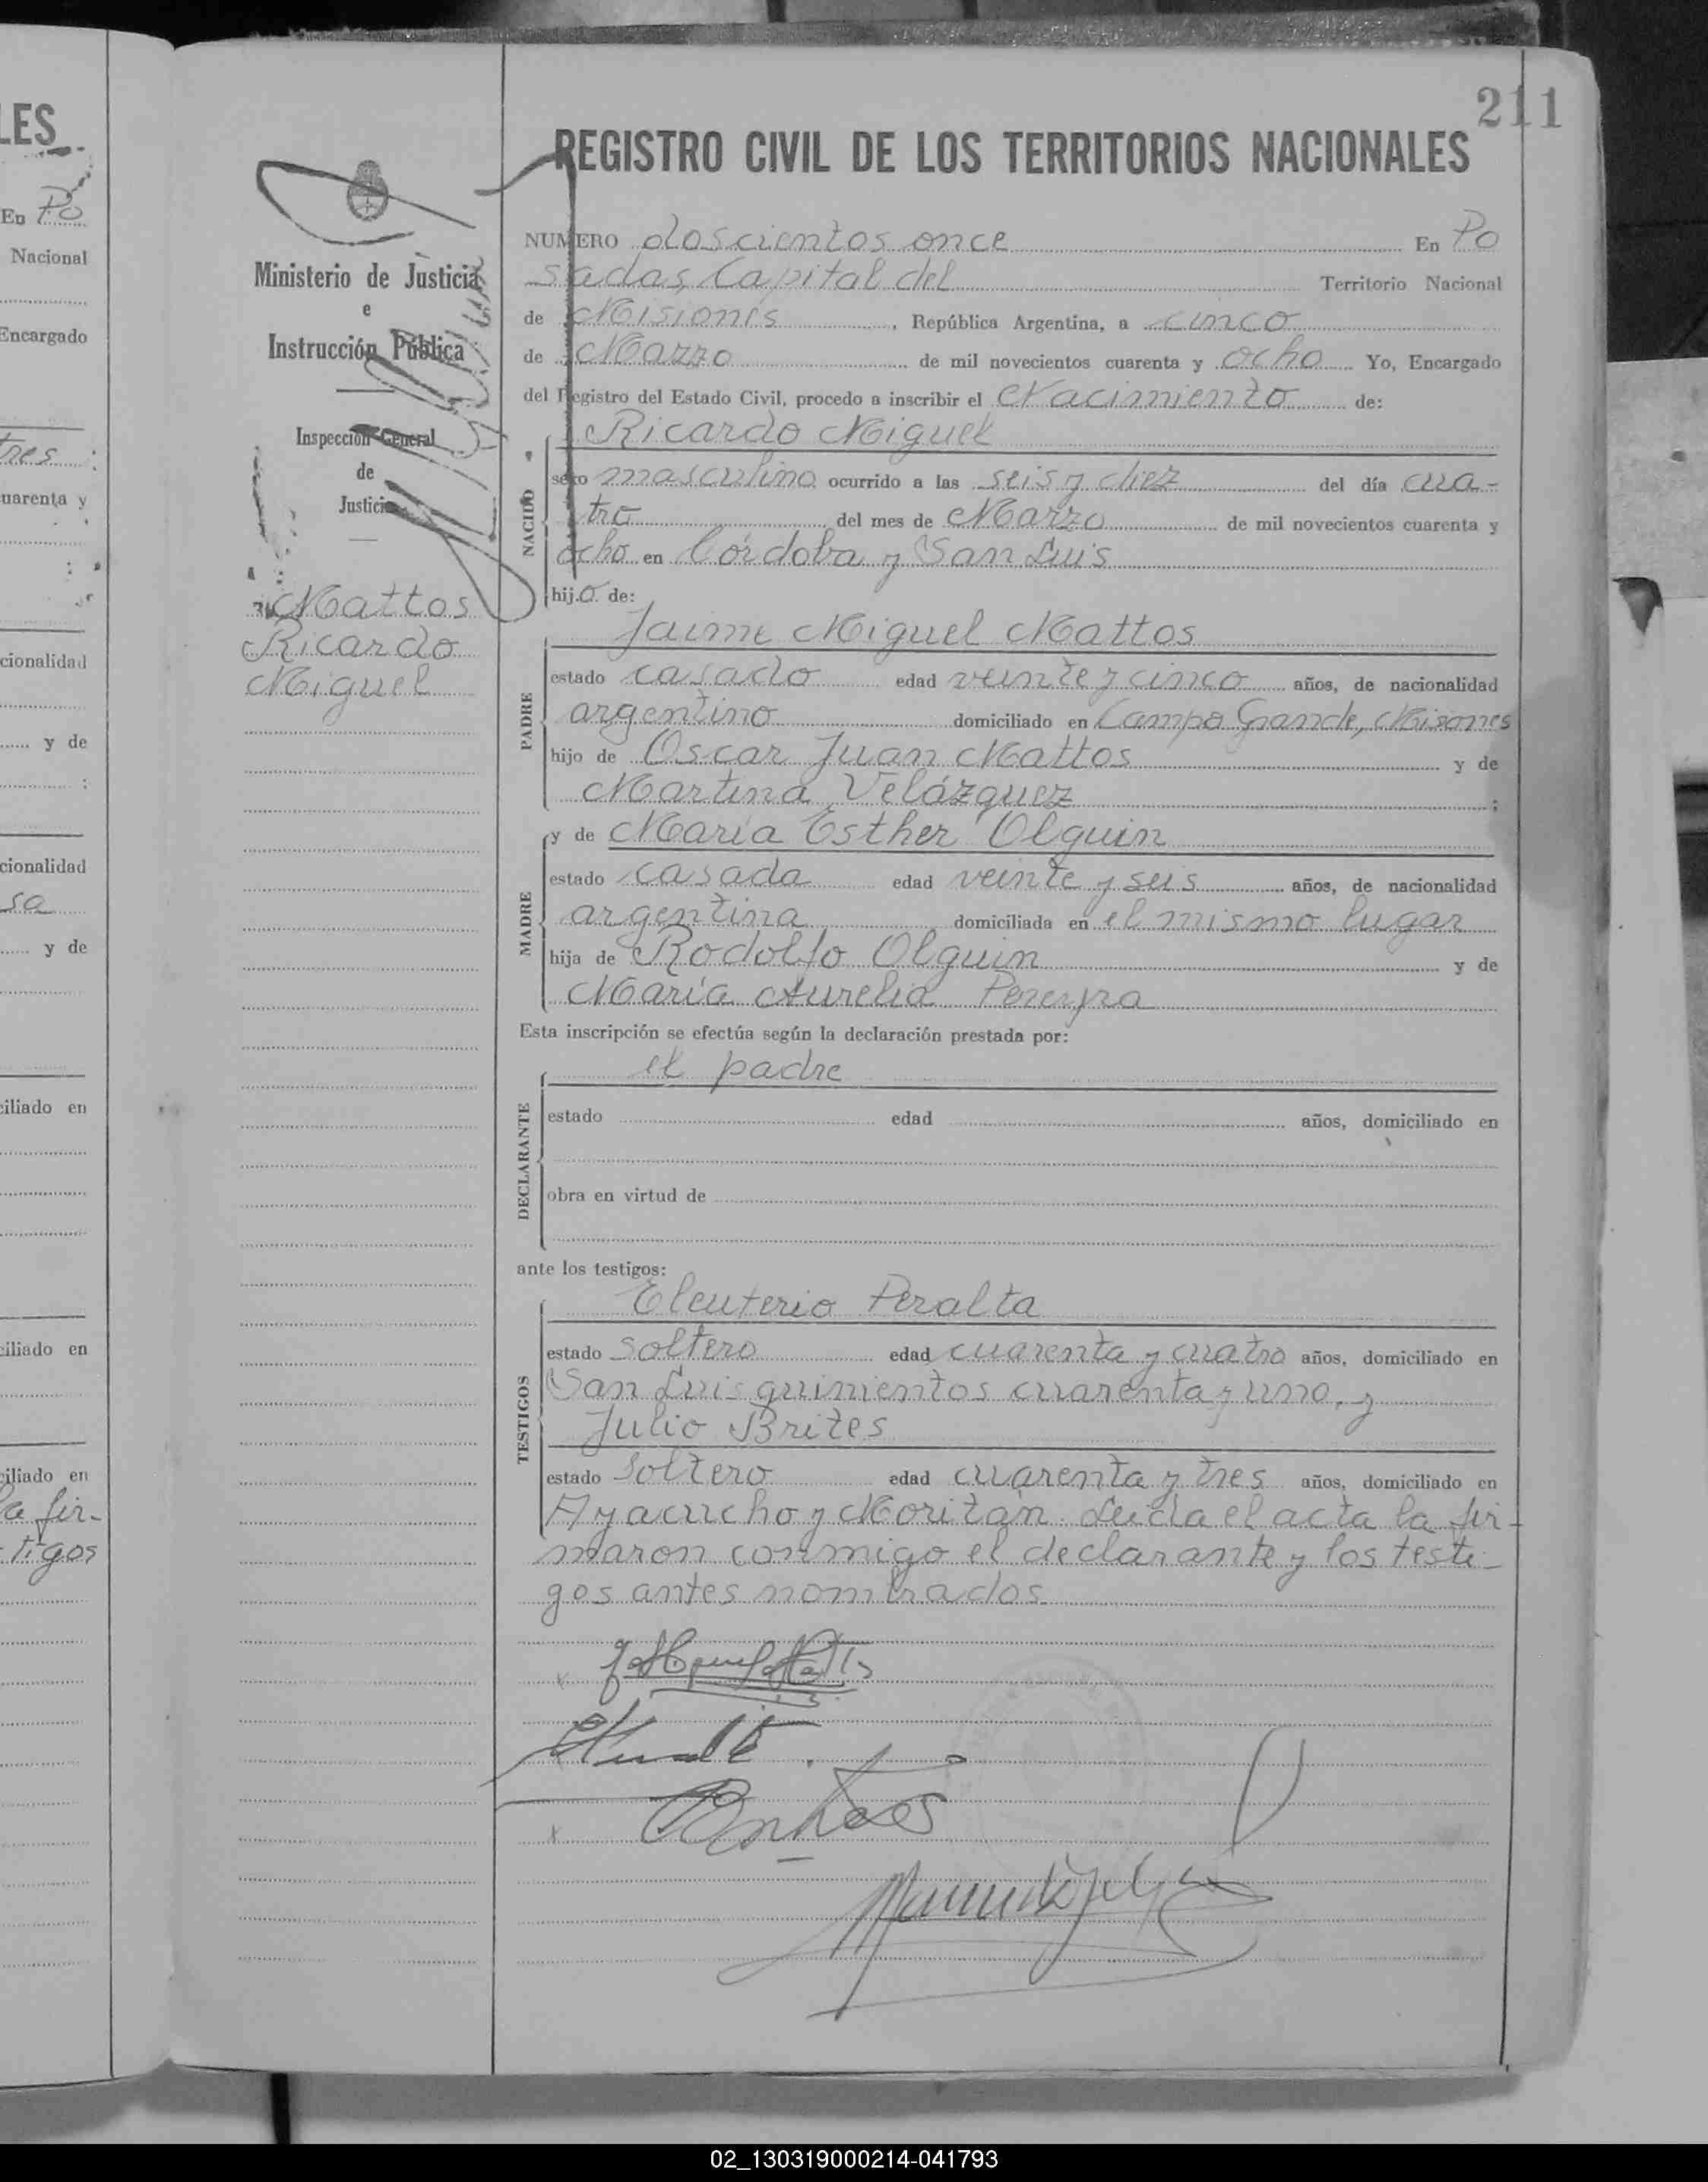 LES
En Po
Nacional
Encargado
tres
cuarenta y
cionalidad
y de
cionalidad
sa
y de
ciliado en
ciliado en
ciliado en
la fir-
tigos
211
REGISTRO CIVIL DE LOS TERRITORIOS NACIONALES
Ministerio de Justicia
e
Instrucción Pública
Inspección General
de
Justicia
Mattos
Ricardo
Miguel
NUMERO doscientos once En Po
sadas, Capital del Territorio Nacional
de Misiones, República Argentina, a cinco
de Marzo de mil novecientos cuarenta y ocho Yo, Encargado
del Registro del Estado Civil, procedo a inscribir el Nacimiento de:
NACIDO
Ricardo Miguel
sexo masculino ocurrido a las seis y diez del día cua-
tro del mes de Marzo de mil novecientos cuarenta y
ocho en Córdoba y San Luis
hijo de:
PADRE
Jaime Miguel Mattos
estado casado edad veinte y cinco años, de nacionalidad
argentino domiciliado en Campo Grande, Misiones
hijo de Oscar Juan Mattos y de
Martina Velázquez ;
MADRE
y de María Esther Olguin
estado casada edad veinte y seis años, de nacionalidad
argentina domiciliada en el mismo lugar
hija de Rodolfo Olguin y de
María Aurelia Pereyra
Esta inscripción se efectúa según la declaración prestada por:
DECLARANTE
el padre
estado edad años, domiciliado en
obra en virtud de
ante los testigos:
TESTIGOS
Eleuterio Peralta
estado soltero edad cuarenta y cuatro años, domiciliado en
San Luis quinientos cuarenta y uno, y
Julio Brites
estado soltero edad cuarenta y tres años, domiciliado en
Ayacucho y Moritán. Leida el acta la fir-
maron conmigo el declarante y los testi-
gos antes nombrados
02_130319000214-041793